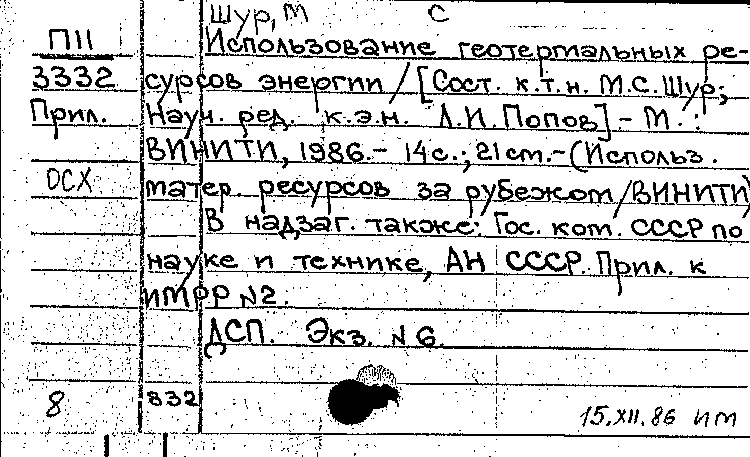 Шур, М С
П11 Использование геотермальных ре-
3332 сурсов энергии / [Сост. к.т.н. М.С. Шур;
Прил. Науч. ред. к.э.н. Л.И. Попов] - М.:
ВИНИТИ, 1986. - 14 с.; 21 ст. - (Использ.
ОСХ матер. ресурсов за рубежом / ВИНИТИ)
В надзаг. также: Гос. ком. СССР по
науке и технике, АН СССР. Прил. к
ИМРР N2.
ДСП. Экз. N 6.
8 832 15.XII.86 им